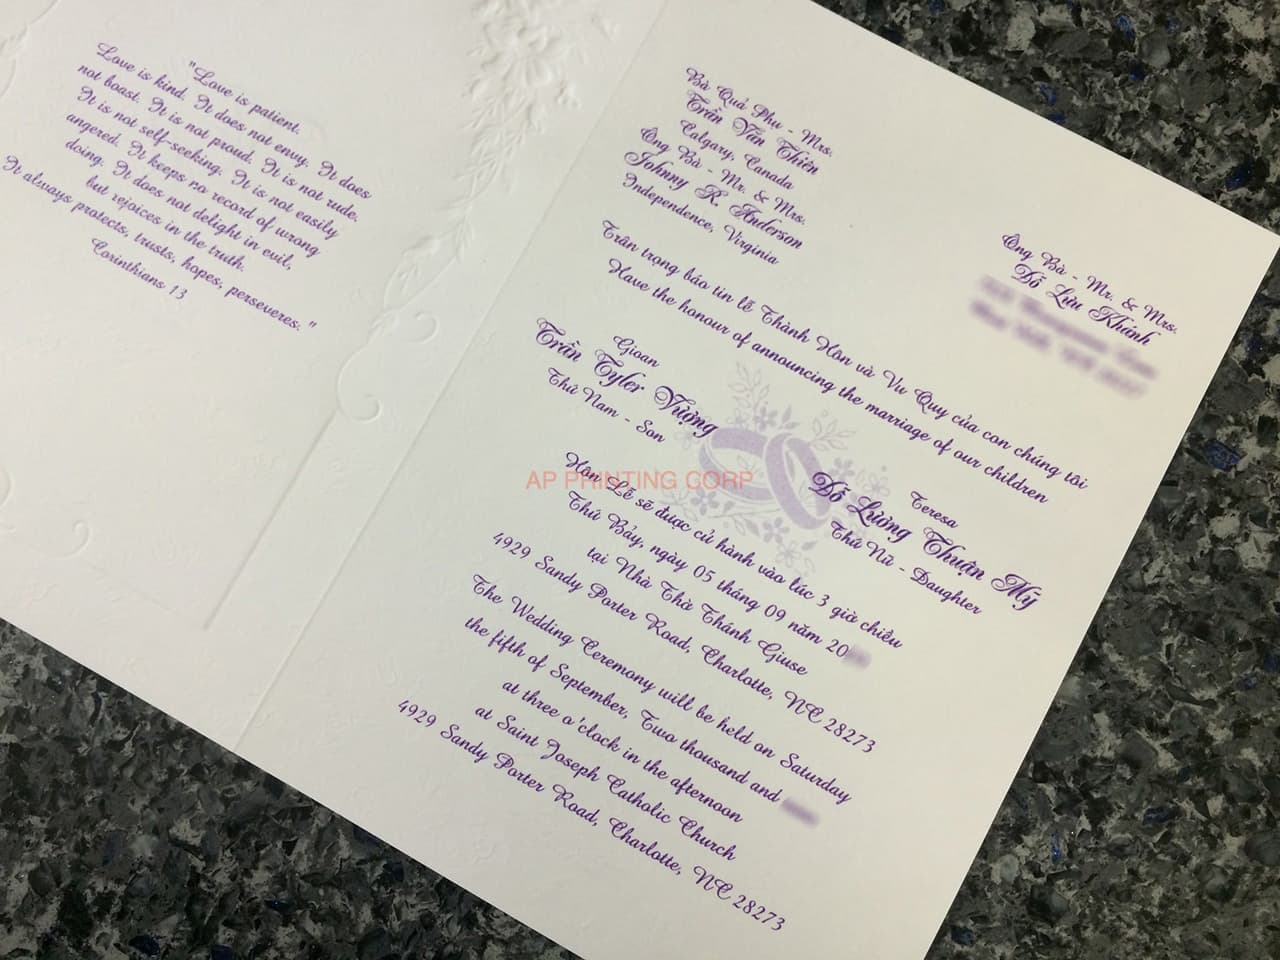 "Love is patient.
Love is kind. It does not envy. It does
not boast. It is not proud. It is not rude.
It is not self-seeking. It is not easily
angered. It keeps no record of wrong
doing. It does not delight in evil,
but rejoices in the truth.
It always protects, trusts, hopes, perseveres."
Corinthians 13
Bà Quả Phụ - Mrs.
Trần Văn Thiên
Calgary, Canada
Ông Bà - Mr. & Mrs.
Johnny R. Anderson
Independence, Virginia
Ông Bà - Mr. & Mrs.
Đỗ Lưu Khánh
Trân trọng báo tin lễ Thành Hôn và Vu Quy của con chúng tôi
Have the honour of announcing the marriage of our children
Gioan
Trần Tyler Vượng
Thứ Nam - Son
Teresa
Đỗ Lương Thuận Mỹ
Thứ Nữ - Daughter
AP PRINTING CORP
Hôn Lễ sẽ được cử hành vào lúc 3 giờ chiều
Thứ Bảy, ngày 05 tháng 09 năm 20
tại Nhà Thờ Thánh Giuse
4929 Sandy Porter Road, Charlotte, NC 28273
The Wedding Ceremony will be held on Saturday
the fifth of September, Two thousand and
at three o'clock in the afternoon
at Saint Joseph Catholic Church
4929 Sandy Porter Road, Charlotte, NC 28273